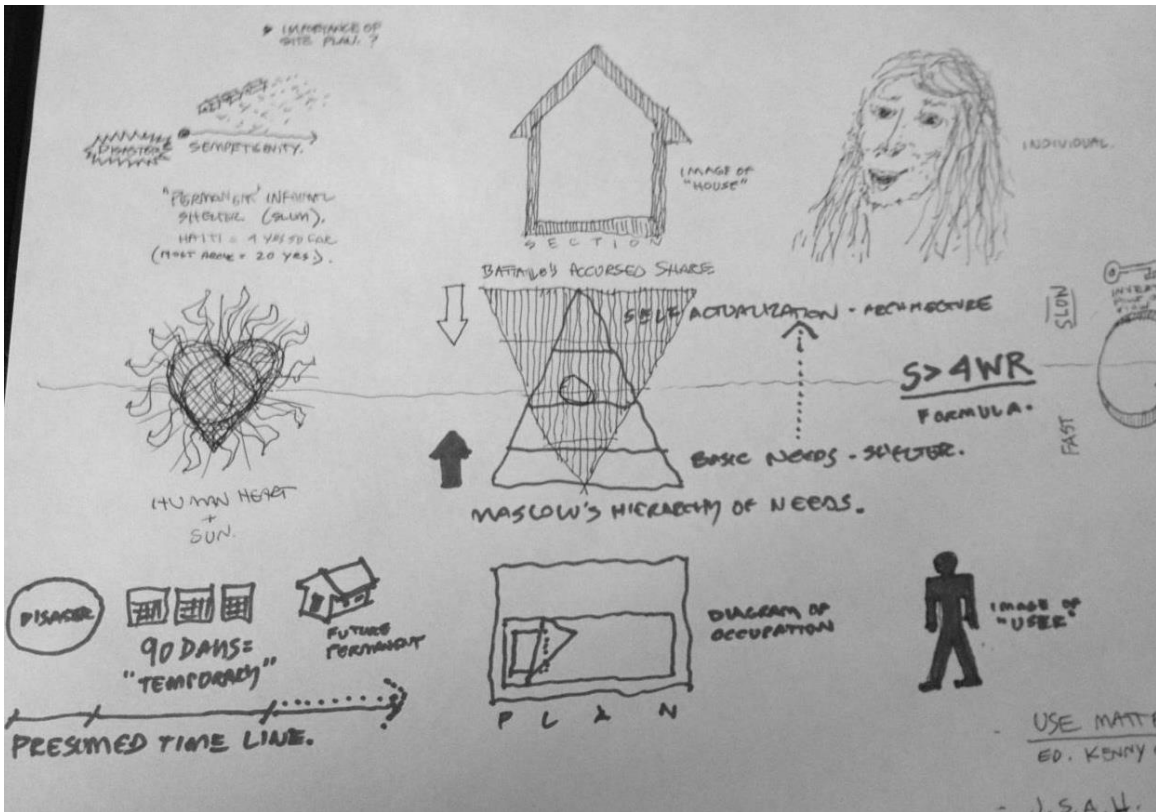 IMPORTANCE OF
SITE PLAN. ?
DISASTER
SEMPITERNITY.
"PERMANENT" INFORMAL
SHELTER (SLUM).
HAITI = 4 YRS SO FAR
(MOST ABOVE = 20 YRS).
SECTION
IMAGE OF
"HOUSE"
INDIVIDUAL.
HUMAN HEART
+
SUN.
BATAILLE'S ACCURSED SHARE
SELF ACTUALIZATION - ARCHITECTURE
BASIC NEEDS - SHELTER.
MASLOW'S HIERARCHY OF NEEDS.
S > 4WR
FORMULA.
SLOW
FAST
DISASTER
90 DAYS =
"TEMPORARY"
FUTURE
PERMANENT
PRESUMED TIME LINE.
PLAN
DIAGRAM OF
OCCUPATION
IMAGE OF
"USER"
- USE MATTE
ED. KENNY
- J.S.A.H.